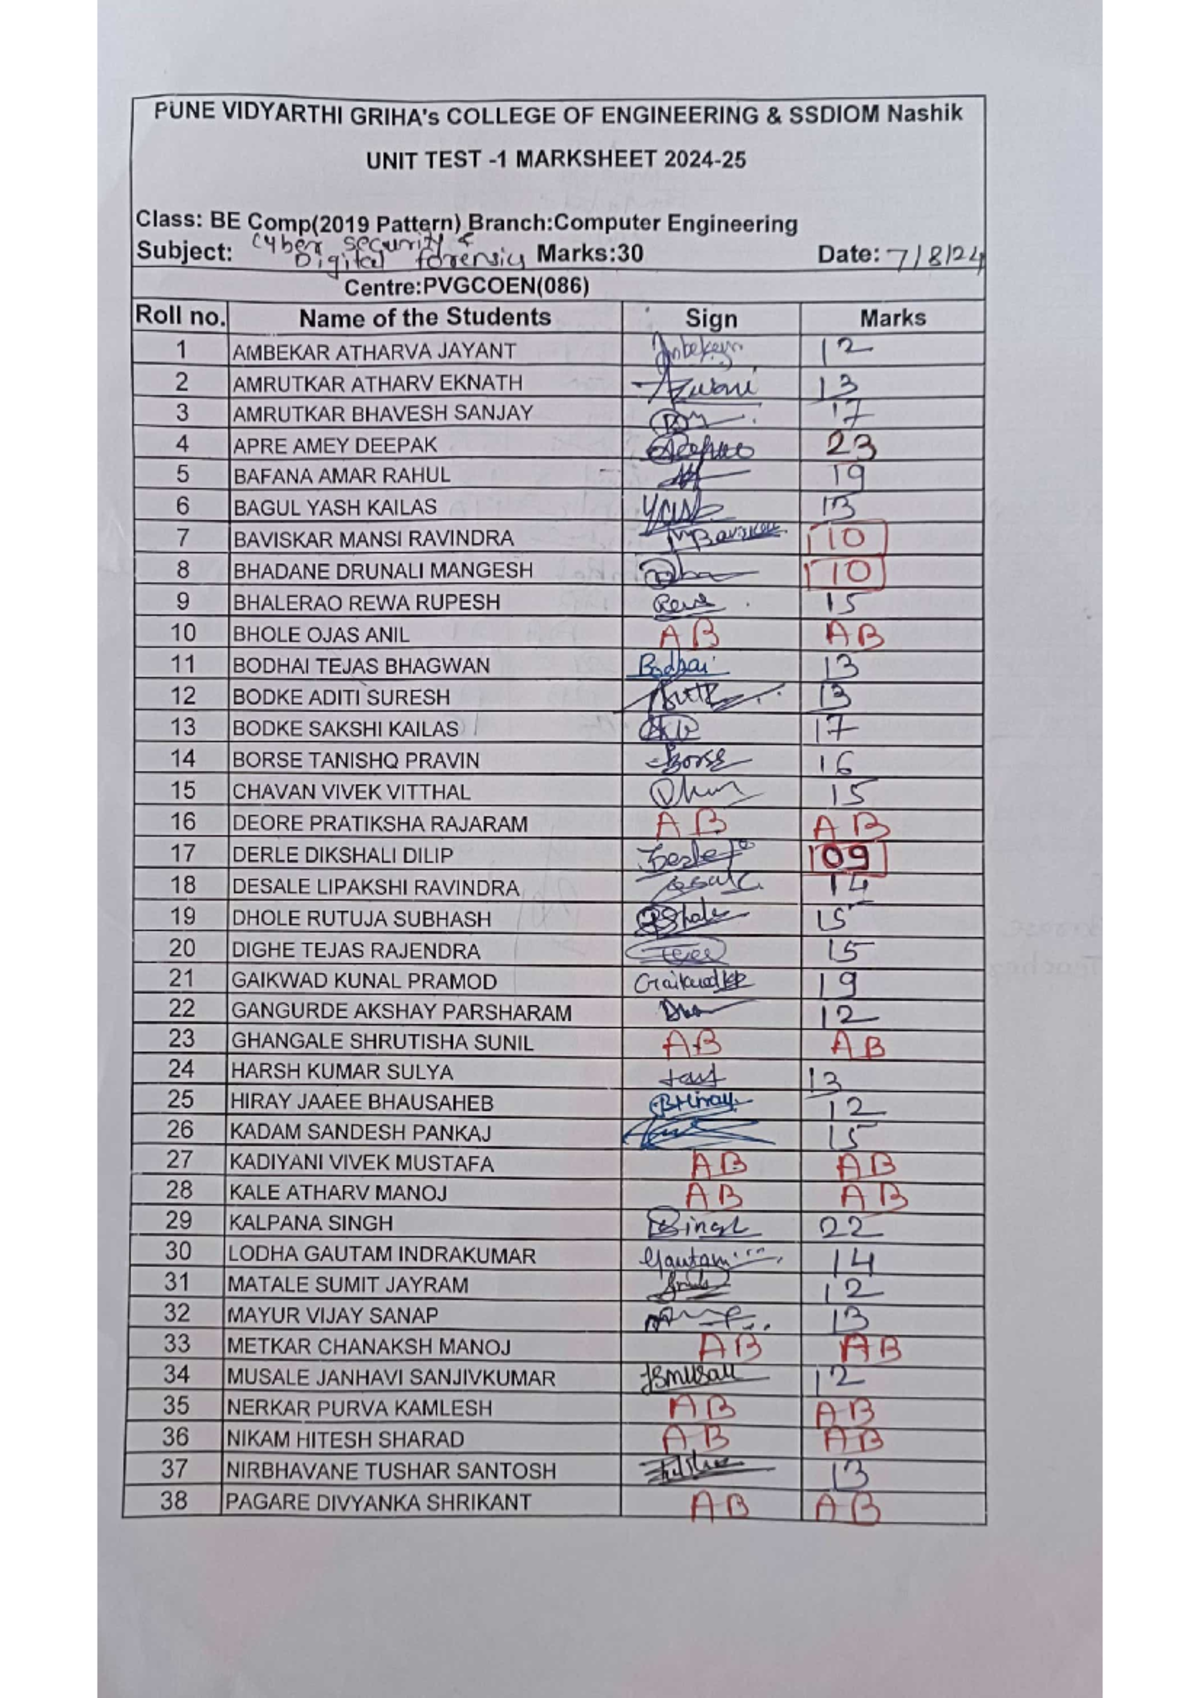 PUNE VIDYARTHI GRIHA's COLLEGE OF ENGINEERING & SSDIOM Nashik
UNIT TEST -1 MARKSHEET 2024-25
Class: BE Comp(2019 Pattern) Branch:Computer Engineering
Subject: Cyber security & Digital forensics Marks:30 Date: 7/8/24
Centre:PVGCOEN(086)
Roll no. Name of the Students Sign Marks
1 AMBEKAR ATHARVA JAYANT 12
2 AMRUTKAR ATHARV EKNATH 13
3 AMRUTKAR BHAVESH SANJAY 17
4 APRE AMEY DEEPAK 23
5 BAFANA AMAR RAHUL 19
6 BAGUL YASH KAILAS Yash 13
7 BAVISKAR MANSI RAVINDRA 10
8 BHADANE DRUNALI MANGESH 10
9 BHALERAO REWA RUPESH 15
10 BHOLE OJAS ANIL AB AB
11 BODHAI TEJAS BHAGWAN Bodhai 13
12 BODKE ADITI SURESH 13
13 BODKE SAKSHI KAILAS 17
14 BORSE TANISHQ PRAVIN Borse 16
15 CHAVAN VIVEK VITTHAL 15
16 DEORE PRATIKSHA RAJARAM AB AB
17 DERLE DIKSHALI DILIP 09
18 DESALE LIPAKSHI RAVINDRA 14
19 DHOLE RUTUJA SUBHASH 15
20 DIGHE TEJAS RAJENDRA 15
21 GAIKWAD KUNAL PRAMOD GaikwadKP 19
22 GANGURDE AKSHAY PARSHARAM 12
23 GHANGALE SHRUTISHA SUNIL AB AB
24 HARSH KUMAR SULYA 13
25 HIRAY JAAEE BHAUSAHEB 12
26 KADAM SANDESH PANKAJ 15
27 KADIYANI VIVEK MUSTAFA AB AB
28 KALE ATHARV MANOJ AB AB
29 KALPANA SINGH Singh 22
30 LODHA GAUTAM INDRAKUMAR Gautam 14
31 MATALE SUMIT JAYRAM 12
32 MAYUR VIJAY SANAP 13
33 METKAR CHANAKSH MANOJ AB AB
34 MUSALE JANHAVI SANJIVKUMAR 12
35 NERKAR PURVA KAMLESH AB AB
36 NIKAM HITESH SHARAD AB AB
37 NIRBHAVANE TUSHAR SANTOSH 13
38 PAGARE DIVYANKA SHRIKANT AB AB